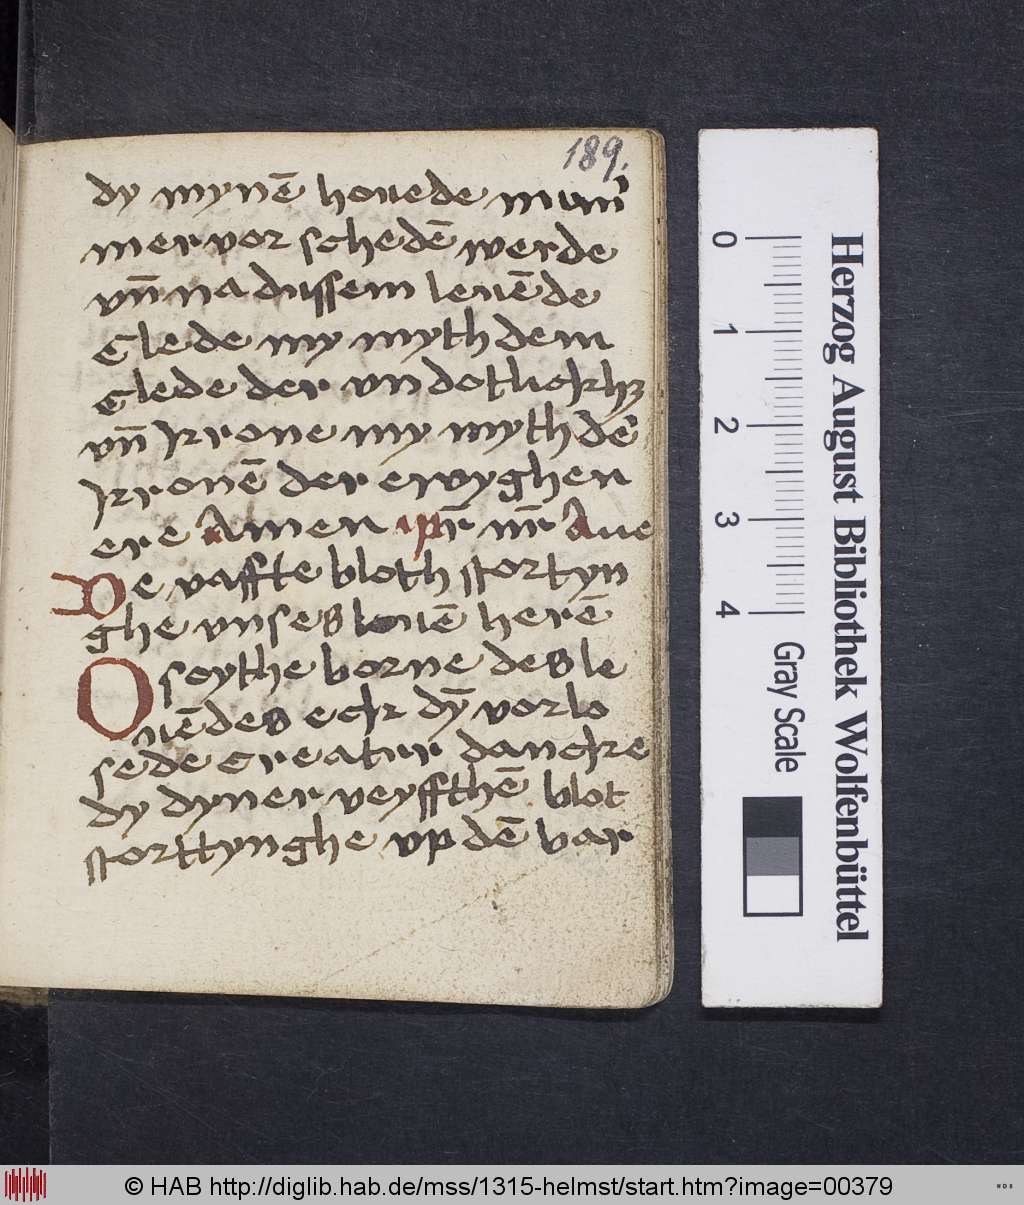 189.
dy mynē houede num̄
mer vor schedē werde
vn̄ na dussem leuēde
Clede my myth dem
clede der vn dotlickhꝫ
vn̄ krone my myth dē
kronē der ewyghen
ere Amen pr̄ nr̄ Aue
De vaffte bloth stortyn
ghe vnses leuē herē
O soythe borne des le
uēdes eck dȳ vorlo
sede creatur dancke
dy dyner veyffthē blot
storttynghe vp dē bar
0
1
2
3
4
Gray Scale
Herzog August Bibliothek Wolfenbüttel
© HAB http://diglib.hab.de/mss/1315-helmst/start.htm?image=00379